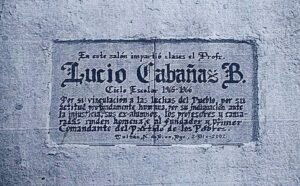 En este salón impartió clases el Profr.
Lucio Cabañas B.
Ciclo Escolar 1965-1966
Por su vinculacion a las luchas del Pueblo, por su
actitud profundamente humana, por su indignación ante
la injusticia, sus ex-alumnos, los profesores y cama-
radas rinden homenaje al fundador y Primer
Comandante del Partido de los Pobres.
Dgo., 2-Dic-2002.